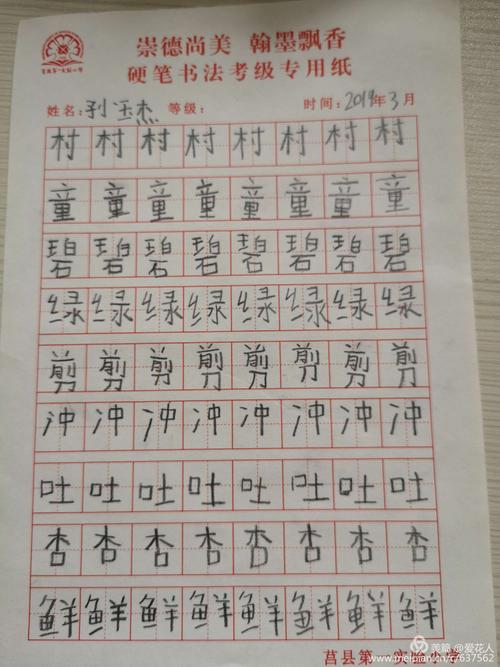 崇德尚美 翰墨飘香
硬笔书法考级专用纸
姓名:孙玉杰 等级: 时间:2019年3月
村村村村村村村村
童童童童童童童童
碧碧碧碧碧碧碧碧
绿绿绿绿绿绿绿绿
剪剪剪剪剪剪剪剪
冲冲冲冲冲冲冲冲
吐吐吐吐吐吐吐吐
杏杏杏杏杏杏杏杏
鲜鲜鲜鲜鲜鲜鲜鲜
莒县第一实验小学
美篇 @爱花人
www.meipian.cn/c/637562